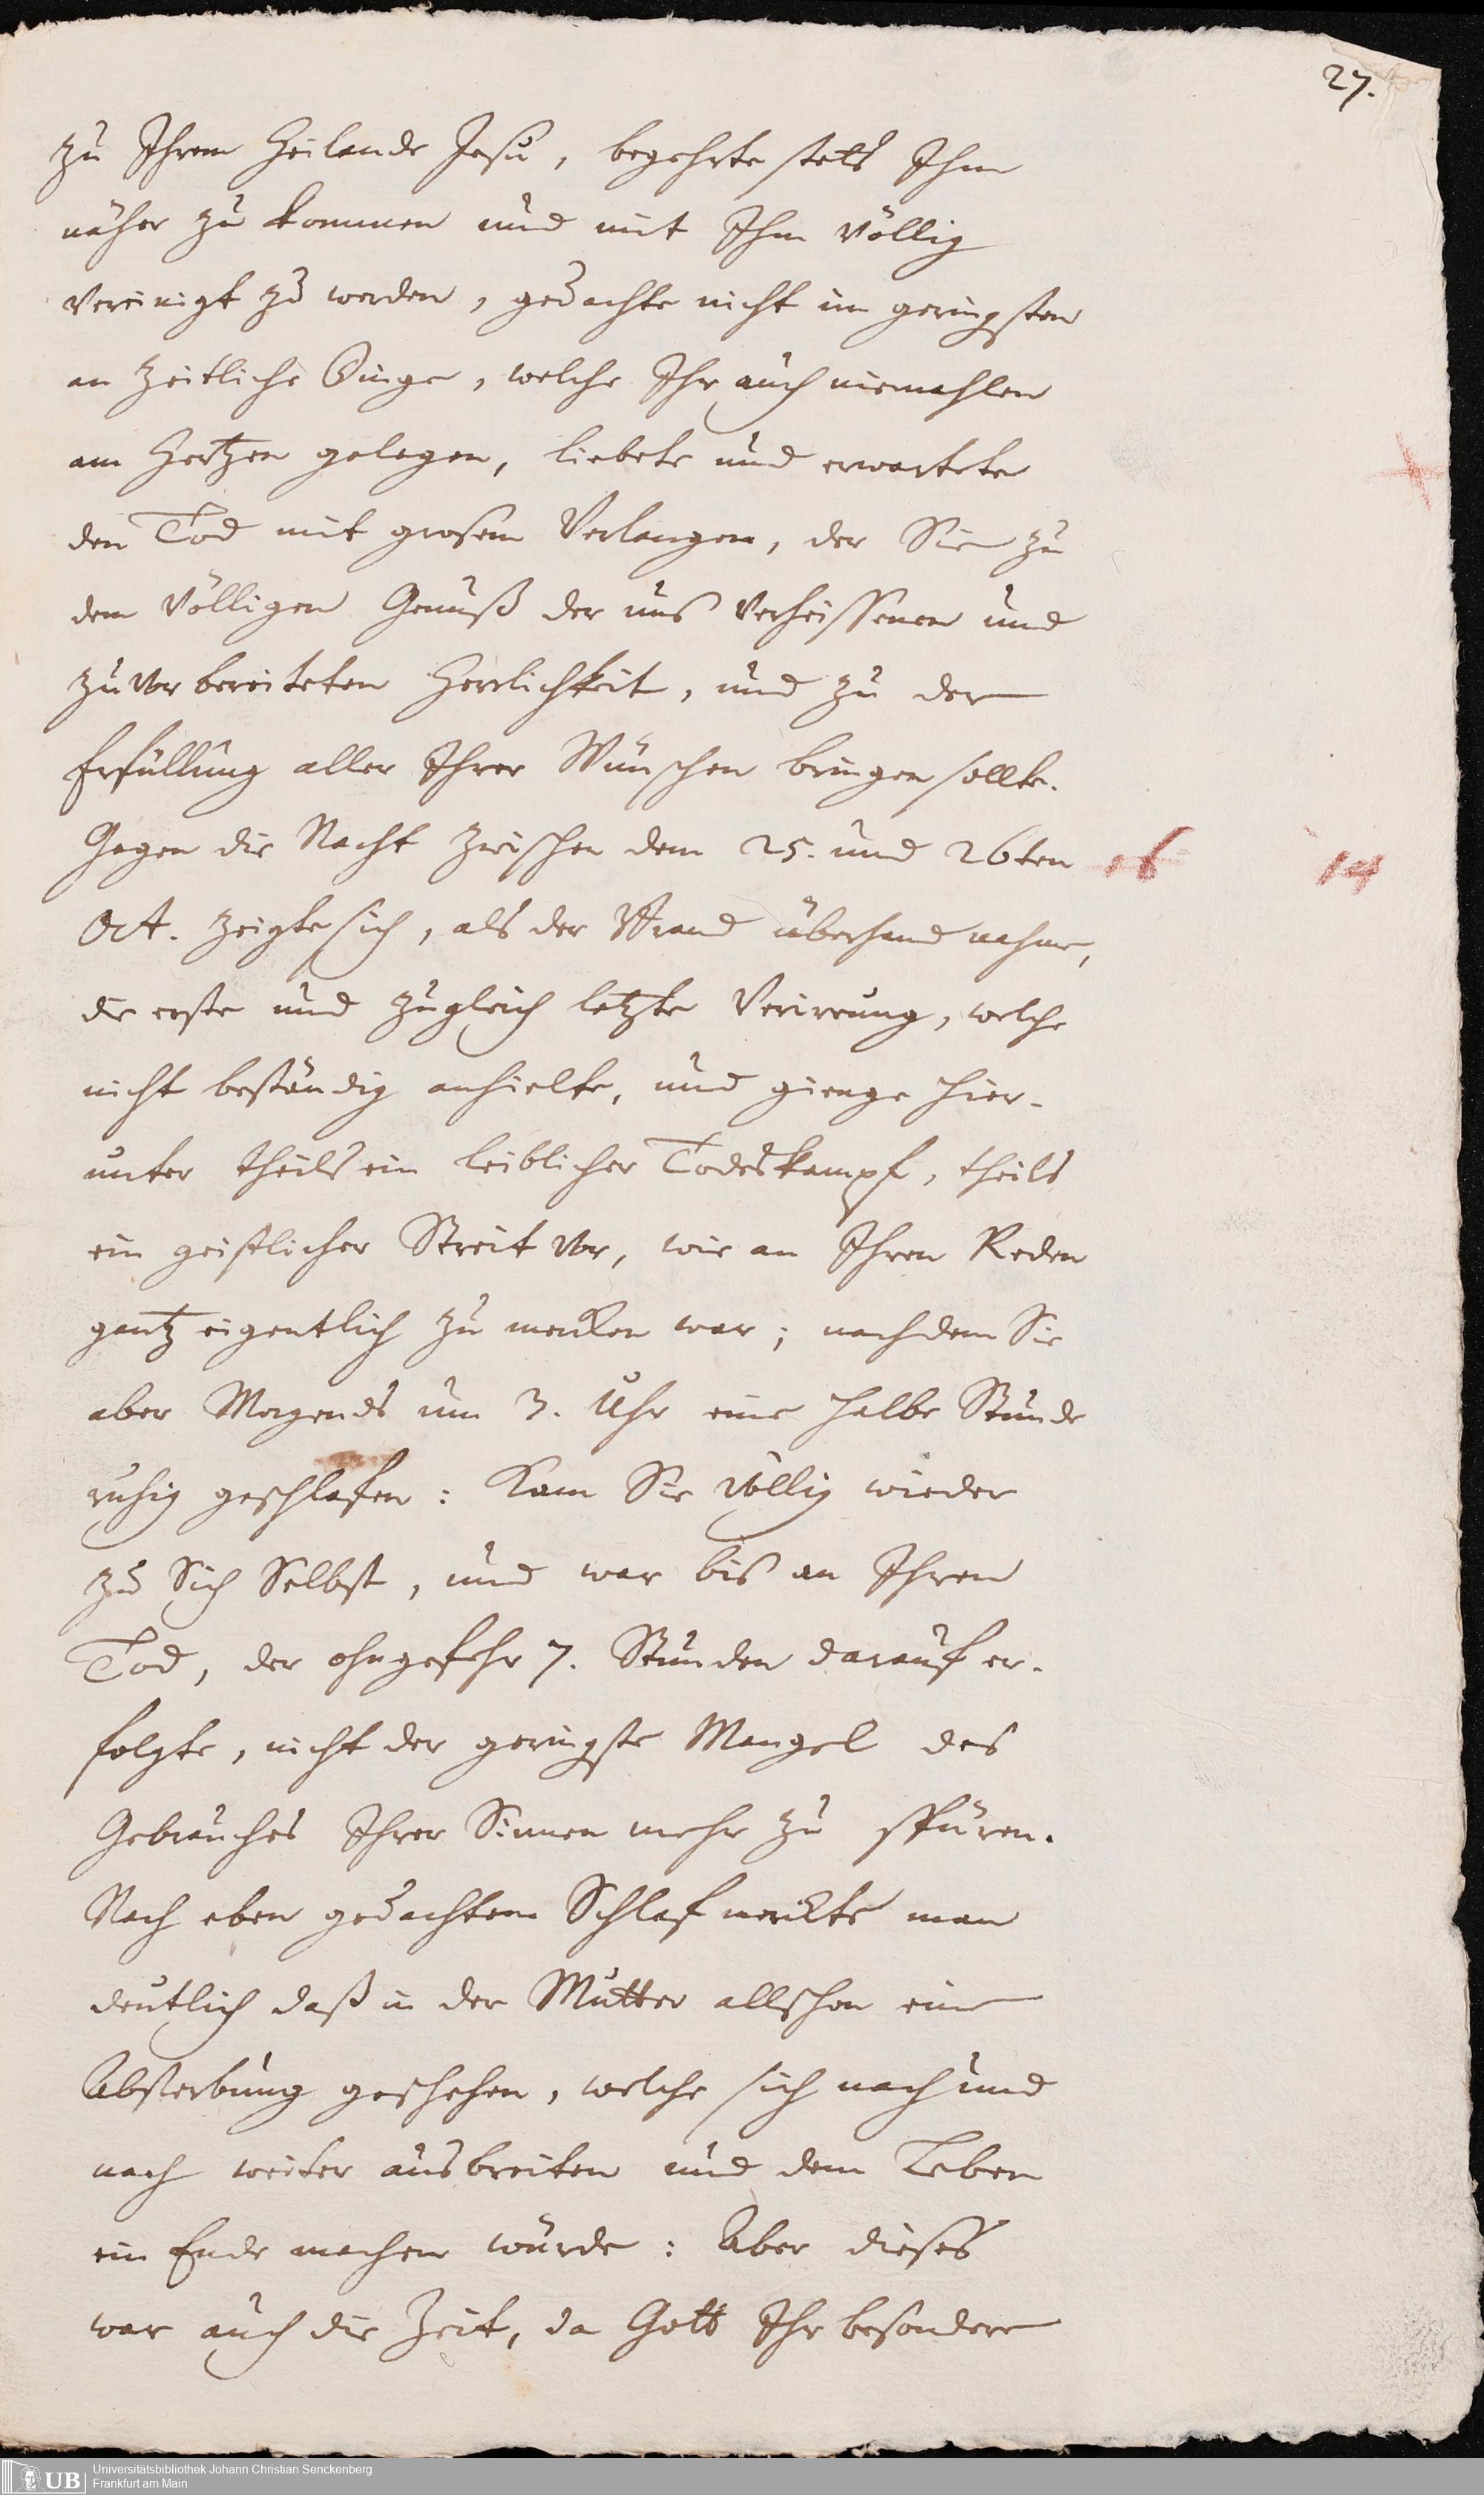 27.
zu Ihrem Heilande Jesu, begehrte stets Ihm
näher zu kommen und mit Ihm völlig
vereinigt zu werden, gedachte nicht im geringsten
an zeitliche Dinge, welche Ihr auch niemahlen
am Hertzen gelegen, liebete und erwartete
den Tod mit grosem Verlangen, der Sie zu
dem völligen Genuß der uns verheissenen und
zuvor bereiteten Herrlichkeit, und zu der
Erfüllung aller Ihrer Wünschen bringen sollte.
Gegen die Nacht zwischen dem 25. und 26ten
16 14
Oct. zeigte sich, als der Brand überhand nahme,
die erste und zugleich letzte Verirrung, welche
nicht beständig anhielte, und gienge hier-
unter theils ein leiblicher Todeskampf, theils
ein geistlicher Streit vor, wie an Ihren Reden
gantz eigentlich zu mercken war; nachdem Sie
aber Morgends um 3. Uhr eine halbe Stunde
ruhig geschlafen: Kam Sie völlig wieder
zu Sich Selbst, und war bis an Ihren
Tod, der ohngefehr 7. Stunden darauf er-
folgte, nicht der geringste Mangel des
Gebrauches Ihrer Sinnen mehr zu spüren.
Nach eben gedachtem Schlaf merckte man
deutlich daß in der Mutter allschon eine
Absterbung geschehen, welche sich nach und
nach weiter ausbreiten und dem Leben
ein Ende machen würde: Aber dieses
war auch die Zeit, da Gott Ihr besondere
UB Universitätsbibliothek Johann Christian Senckenberg
Frankfurt am Main